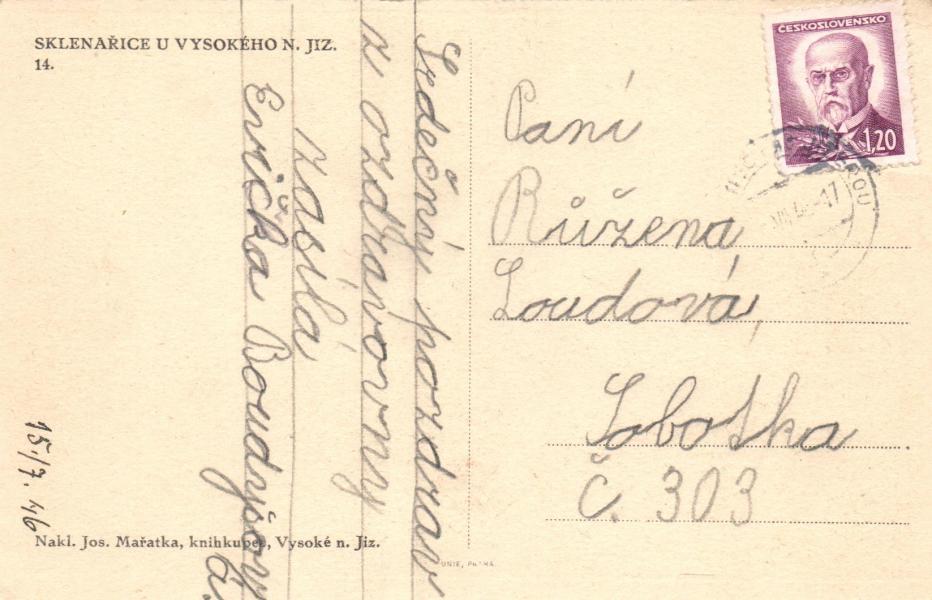 SKLENAŘICE U VYSOKÉHO N. JIZ.
14.
Srdečný pozdrav
z ozdravovny
zasílá
Evička
15./7. 46
Nakl. Jos. Mařatka, knihkupec, Vysoké n. Jiz.
UNIE, PRAHA
ČESKOSLOVENSKO
1,20
Paní
Růžena
Loudová,
Sobotka
Č. 303